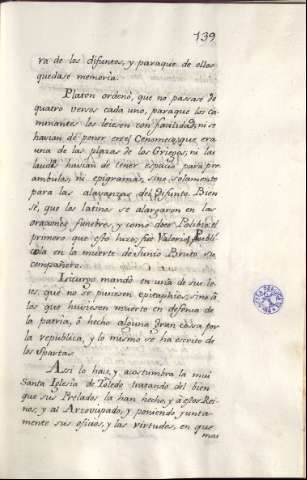 139
ra de los difuntos, y paraque de ellos
quedase memoria.
Platon ordenó, que no pasase de
quatro versos cada uno, paraque los Ca-
minantes los leiesen con facilidad, ni se
havian de poner en el Cenomea, que era
una de las plazas de los Griegos, ni las
laudes havian de tener espacio para pre-
ambulas, ni epigramas, sino solamente
para las alavanzas del difunto. Bien
sé, que los latinos se alargaron en las
oraciones funebres, y como dice Polibio el
primero que esto hizo, fué Valerio Publi-
cola en la muerte de Junio Bruto su
compañero.
Licurgo mandó en una de sus le-
ies, que no se pusiesen epitaphios, sino á
los que huviesen muerto en defensa de
la patria, ó hecho alguna gran cosa por
la republica, y lo mismo se ha escrito de
los Spartas.
Asi lo hace, y acostumbra la mui
Santa Iglesia de Toledo tratando del bien
que sus Prelados la han hecho, y á estos Rei-
nos, y al Arzovispado, y poniendo junta-
mente sus oficios, y las virtudes, en que
mas